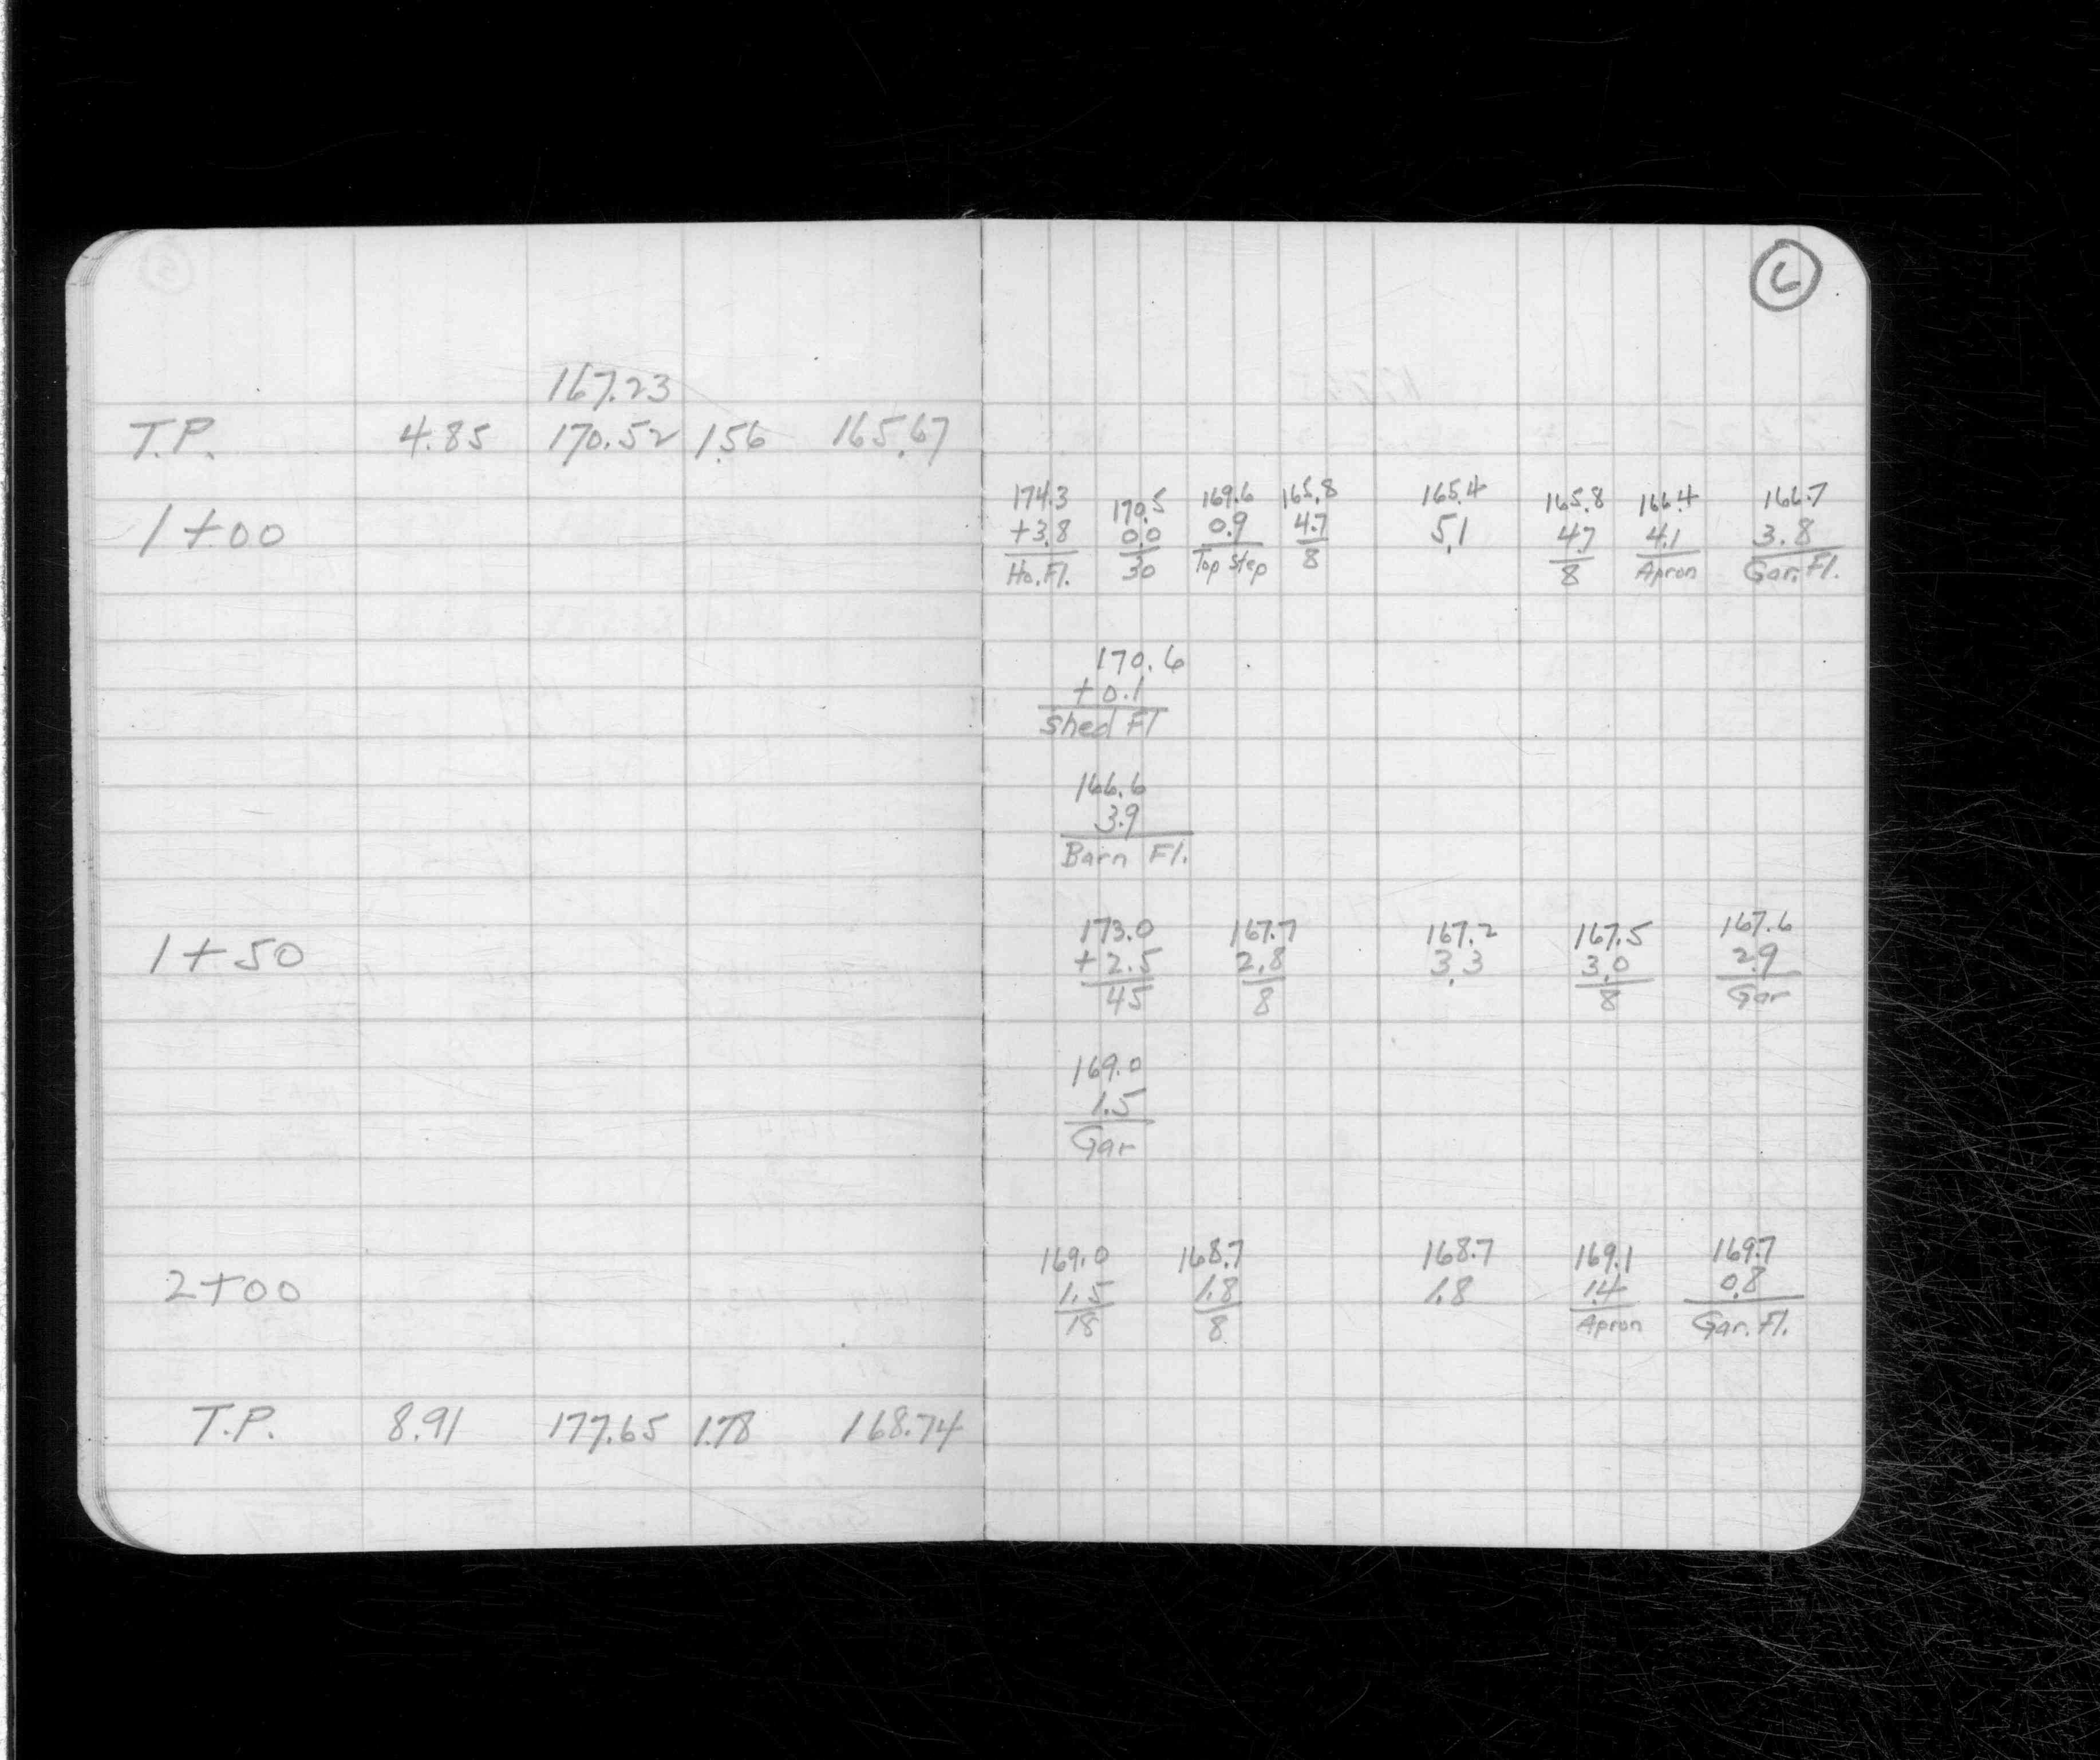 6
167.23
T.P. 4.85 170.52 1.56 165.67
174.3 170.5 169.6 165.8 165.4 165.8 166.4 166.7
1+00 +3.8 0.0 0.9 4.7 5.1 4.7 4.1 3.8
Ho.Fl. 30 Top Step 8 8 Apron Gar. Fl.
170.6
+0.1
Shed Fl
166.6
3.9
Barn Fl.
173.0 167.7 167.2 167.5 167.6
1+50 +2.5 2.8 3.3 3.0 2.9
45 8 8 Gar
169.0
1.5
Gar
169.0 168.7 168.7 169.1 169.7
2+00 1.5 1.8 1.8 1.4 0.8
18 8 Apron Gar. Fl.
T.P. 8.91 177.65 1.78 168.74